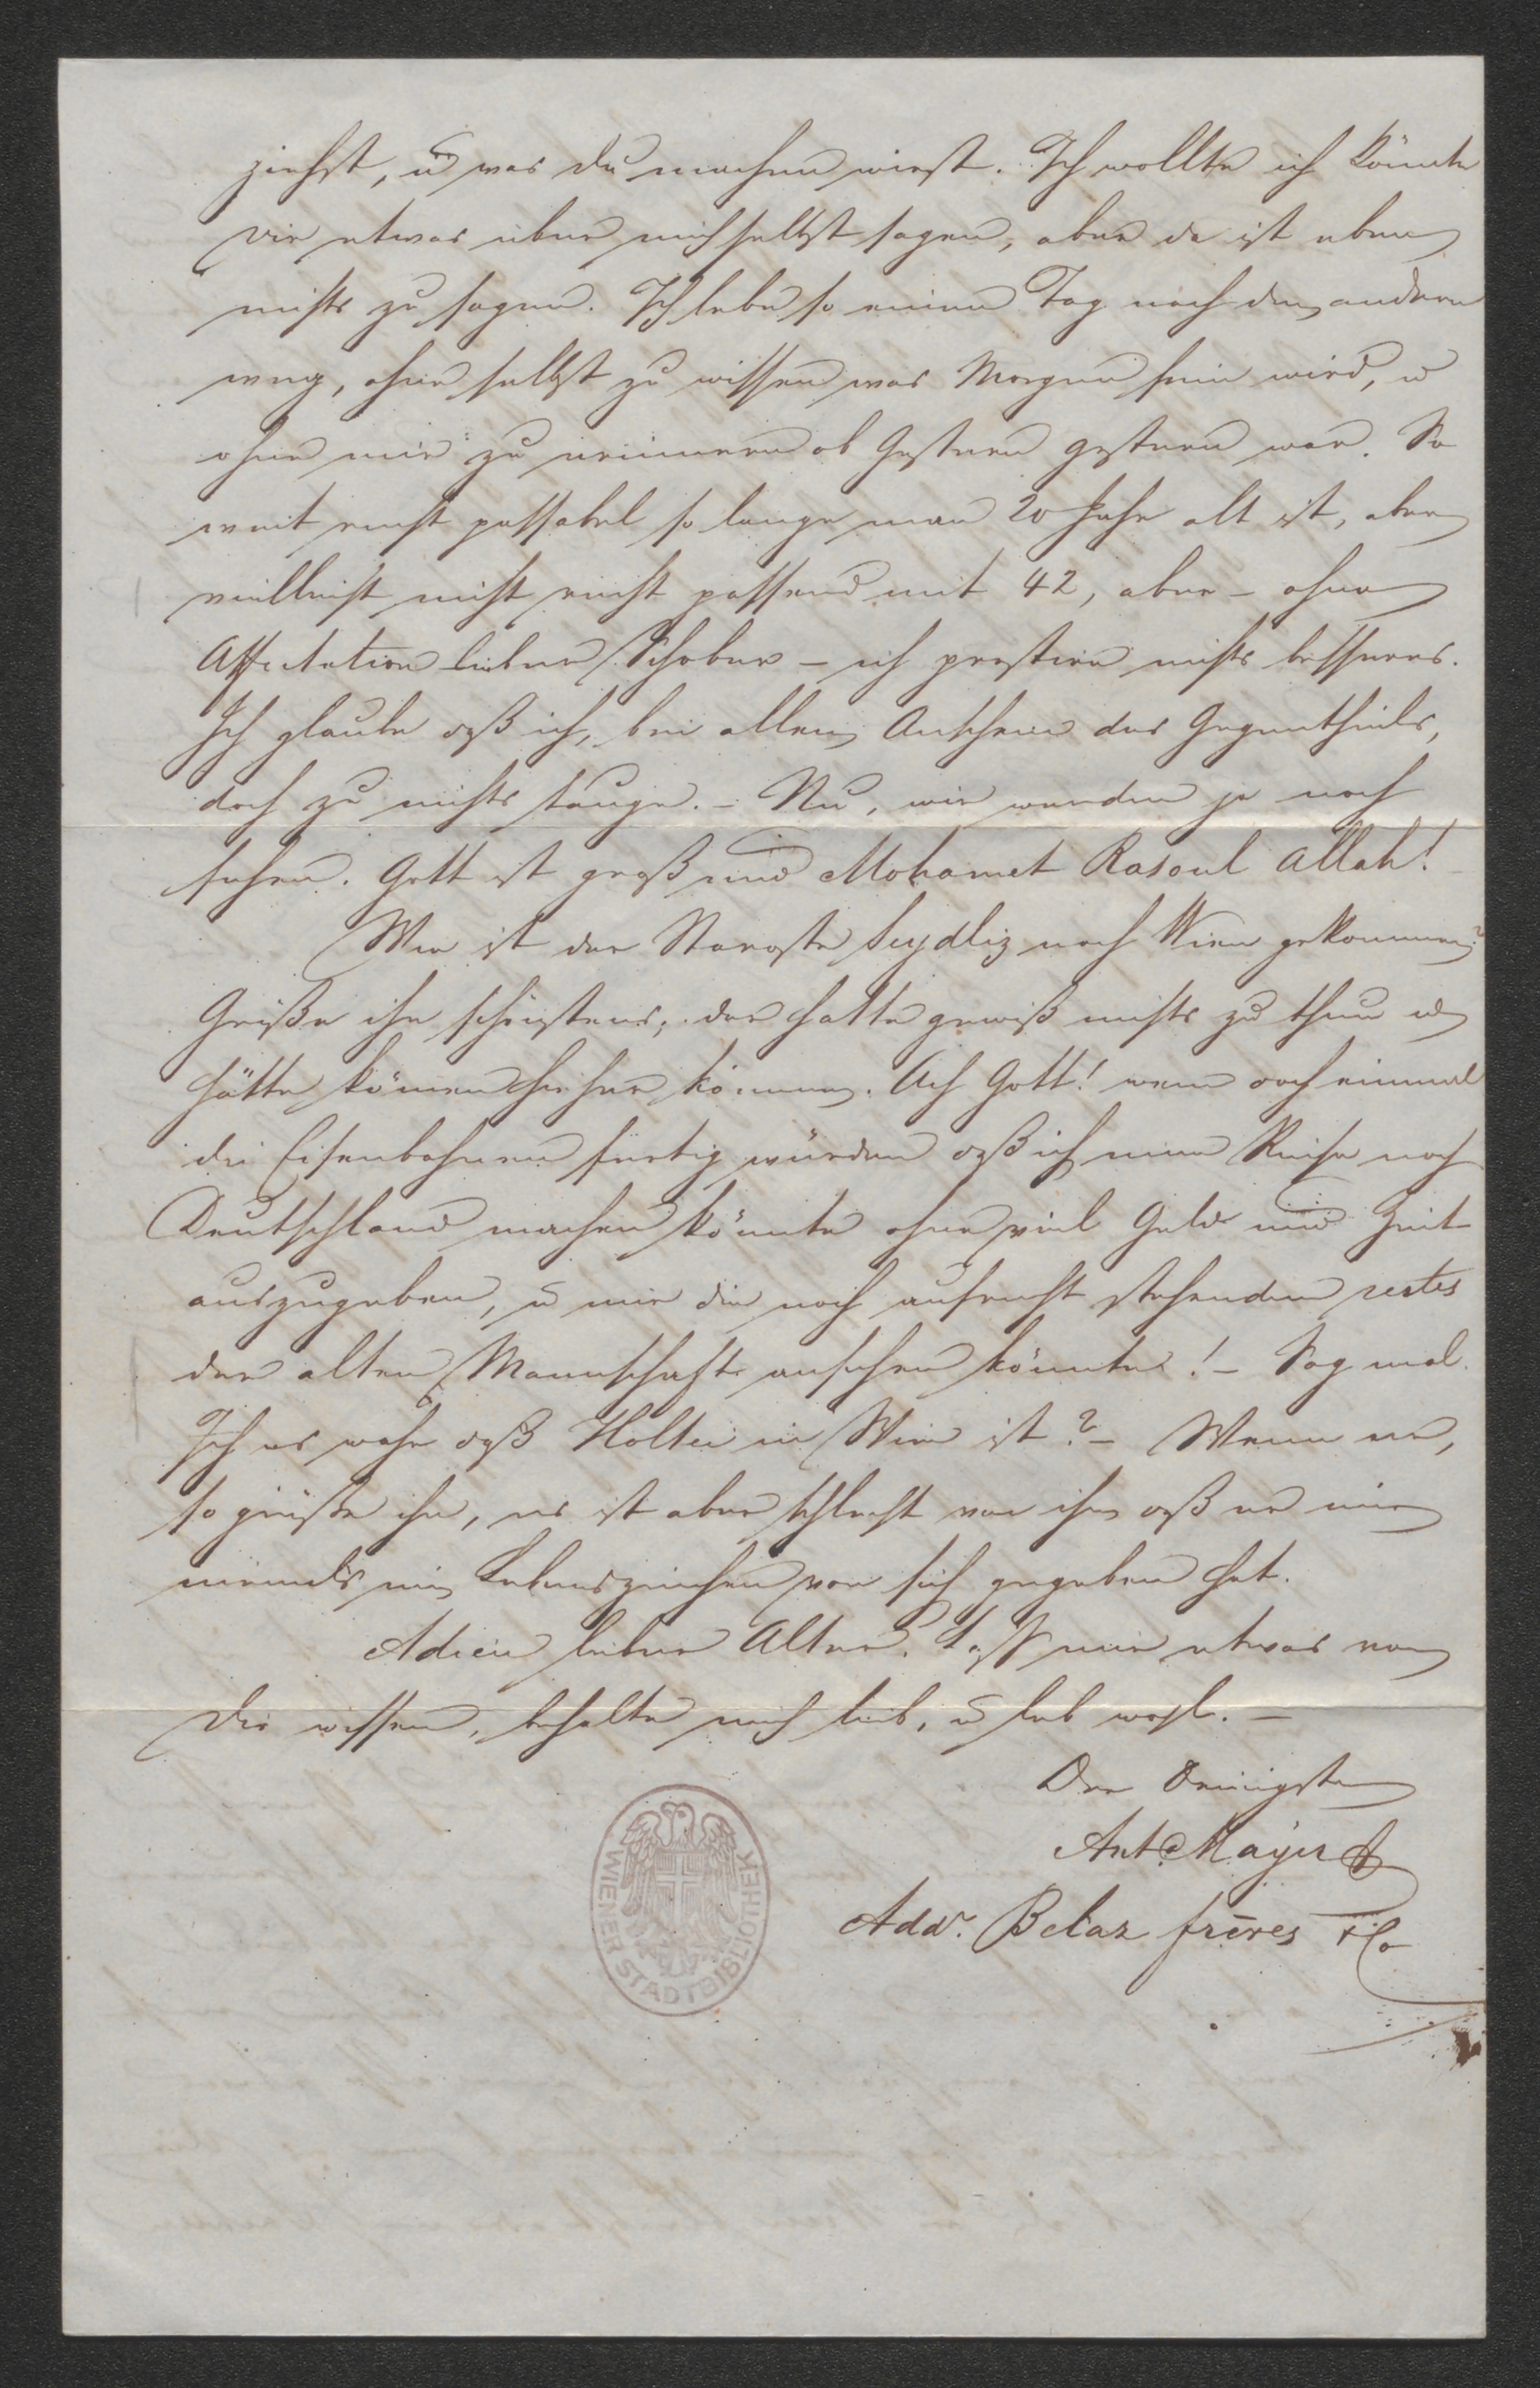 ziehst, u was du machen wirst. Ich wollte ich könnte
Dir etwas über mich selbst sagen, aber da ist eben
nichts zu sagen. Ich lebe so einen Tag nach dem andern
weg, ohne selbst zu wissen was Morgen sein wird, u
ohne mir zu erinnern ob Gestern gestern war. So
weit recht passabel so lange man 20 Jahr alt ist, aber
vielleicht nicht recht passend mit 42, aber – ohne
Affectation lieber Schober – ich prestire nichts besseres.
Ich glaube dß ich, bei allem Anschein des Gegentheils,
doch zu nichts tauge. – Nu, wir werden ja noch
sehen. Gott ist groß und Mohamet Rasoul Allah!
Wie ist der Staroste Seydliz nach Wien gekommen?
Grüße ihn schönstens, der hatte gewiß nichts zu thun u
hätte können hieher kommen. Ach Gott! wenn doch einmal
die Eisenbahnen fertig würden dß ich eine Reise nach
Deutschland machen könnte ohne viel Geld und Zeit
auszugeben, u mir die noch aufrecht stehenden restes
der alten Mannschaft ansehen könnte! – Sag mal
Ist es wahr dß Holtei in Wien ist? – Wenn er,
so grüße ihn, es ist aber schlecht von ihm dß er mir
niemals ein Lebenszeichen von sich gegeben hat.
Adieu lieber Alter. Laß mir etwas von
Dir wissen, behalte mich lieb, u leb wohl. –
Der Deinigste
Ant. Mayer
Addr. Belaz frères & Co
WIENER STADTBIBLIOTHEK